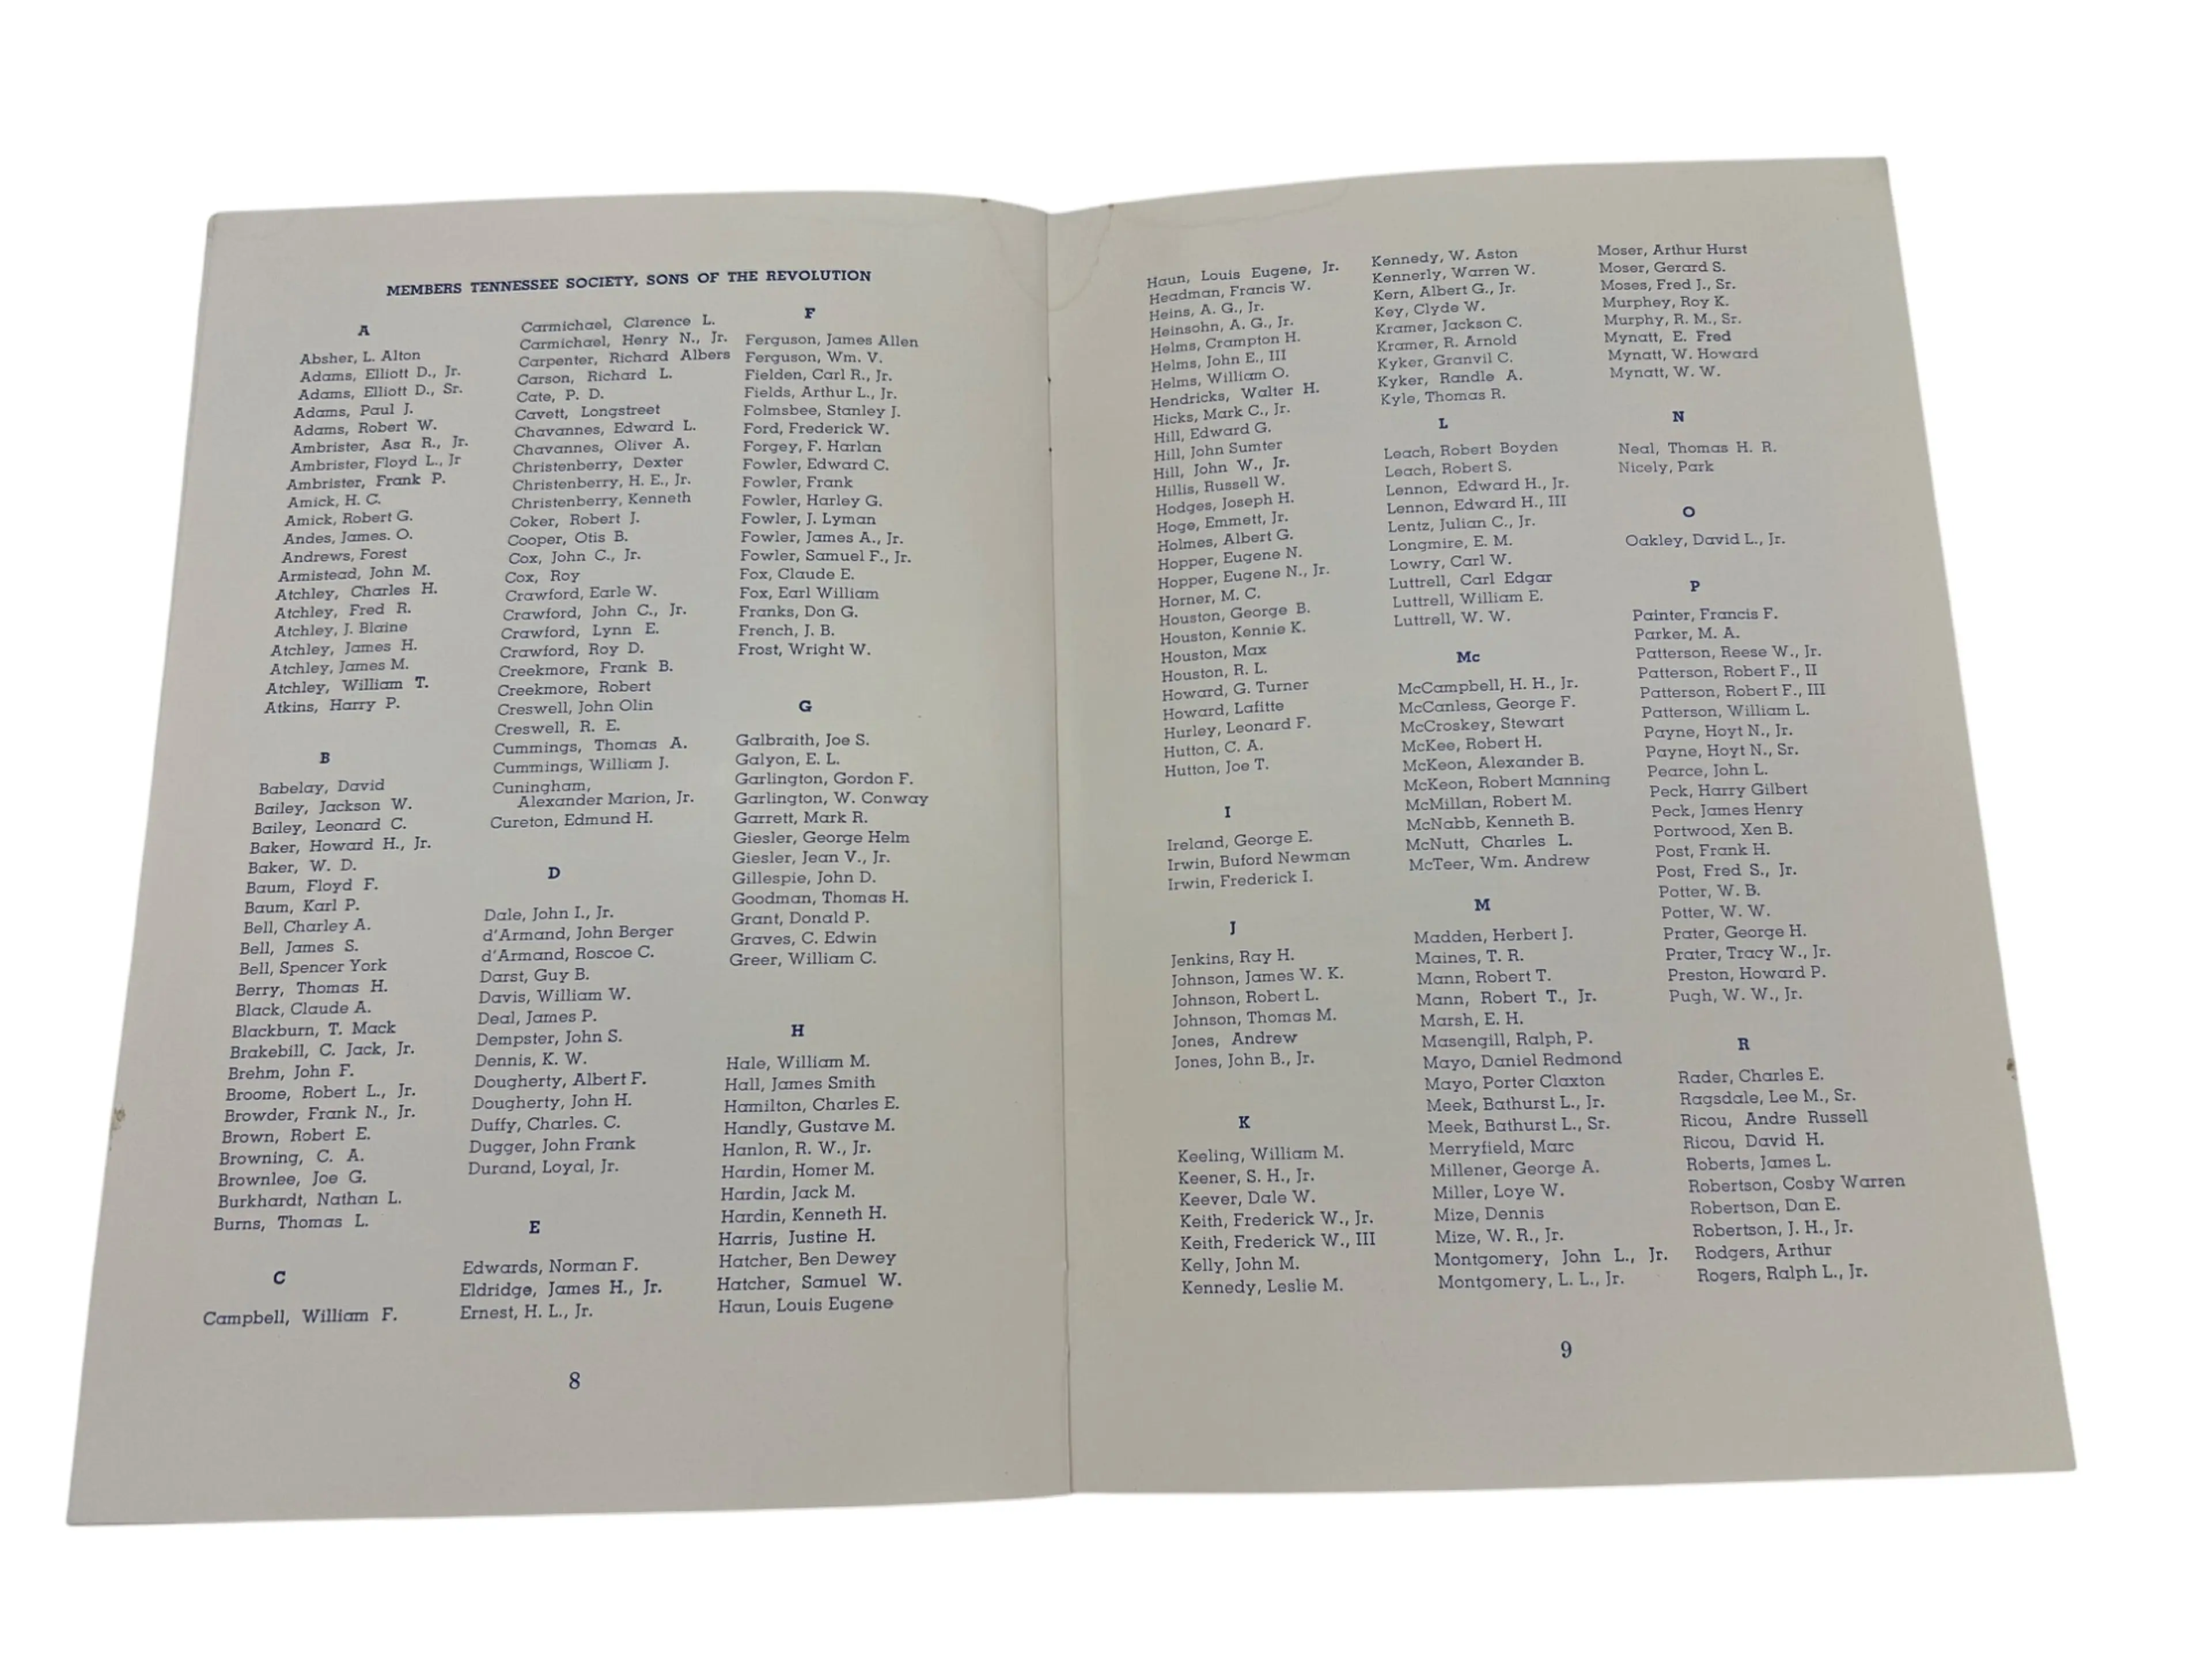 MEMBERS TENNESSEE SOCIETY, SONS OF THE REVOLUTION
A
Absher, L. Alton
Adams, Elliott D., Jr.
Adams, Elliott D., Sr.
Adams, Paul J.
Adams, Robert W.
Ambrister, Asa R., Jr.
Ambrister, Floyd L., Jr
Ambrister, Frank P.
Amick, H. C.
Amick, Robert G.
Andes, James. O.
Andrews, Forest
Armistead, John M.
Atchley, Charles H.
Atchley, Fred R.
Atchley, J. Blaine
Atchley, James H.
Atchley, James M.
Atchley, William T.
Atkins, Harry P.
B
Babelay, David
Bailey, Jackson W.
Bailey, Leonard C.
Baker, Howard H., Jr.
Baker, W. D.
Baum, Floyd F.
Baum, Karl P.
Bell, Charley A.
Bell, James S.
Bell, Spencer York
Berry, Thomas H.
Black, Claude A.
Blackburn, T. Mack
Brakebill, C. Jack, Jr.
Brehm, John F.
Broome, Robert L., Jr.
Browder, Frank N., Jr.
Brown, Robert E.
Browning, C. A.
Brownlee, Joe G.
Burkhardt, Nathan L.
Burns, Thomas L.
C
Campbell, William F.
Carmichael, Clarence L.
Carmichael, Henry N., Jr.
Carpenter, Richard Albers
Carson, Richard L.
Cate, P. D.
Cavett, Longstreet
Chavannes, Edward L.
Chavannes, Oliver A.
Christenberry, Dexter
Christenberry, H. E., Jr.
Christenberry, Kenneth
Coker, Robert J.
Cooper, Otis B.
Cox, John C., Jr.
Cox, Roy
Crawford, Earle W.
Crawford, John C., Jr.
Crawford, Lynn E.
Crawford, Roy D.
Creekmore, Frank B.
Creekmore, Robert
Creswell, John Olin
Creswell, R. E.
Cummings, Thomas A.
Cummings, William J.
Cuningham,
Alexander Marion, Jr.
Cureton, Edmund H.
D
Dale, John I., Jr.
d'Armand, John Berger
d'Armand, Roscoe C.
Darst, Guy B.
Davis, William W.
Deal, James P.
Dempster, John S.
Dennis, K. W.
Dougherty, Albert F.
Dougherty, John H.
Duffy, Charles. C.
Dugger, John Frank
Durand, Loyal, Jr.
E
Edwards, Norman F.
Eldridge, James H., Jr.
Ernest, H. L., Jr.
F
Ferguson, James Allen
Ferguson, Wm. V.
Fielden, Carl R., Jr.
Fields, Arthur L., Jr.
Folmsbee, Stanley J.
Ford, Frederick W.
Forgey, F. Harlan
Fowler, Edward C.
Fowler, Frank
Fowler, Harley G.
Fowler, J. Lyman
Fowler, James A., Jr.
Fowler, Samuel F., Jr.
Fox, Claude E.
Fox, Earl William
Franks, Don G.
French, J. B.
Frost, Wright W.
G
Galbraith, Joe S.
Galyon, E. L.
Garlington, Gordon F.
Garlington, W. Conway
Garrett, Mark R.
Giesler, George Helm
Giesler, Jean V., Jr.
Gillespie, John D.
Goodman, Thomas H.
Grant, Donald P.
Graves, C. Edwin
Greer, William C.
H
Hale, William M.
Hall, James Smith
Hamilton, Charles E.
Handly, Gustave M.
Hanlon, R. W., Jr.
Hardin, Homer M.
Hardin, Jack M.
Hardin, Kenneth H.
Harris, Justine H.
Hatcher, Ben Dewey
Hatcher, Samuel W.
Haun, Louis Eugene
8
Haun, Louis Eugene, Jr.
Headman, Francis W.
Heins, A. G., Jr.
Heinsohn, A. G., Jr.
Helms, Crampton H.
Helms, John E., III
Helms, William O.
Hendricks, Walter H.
Hicks, Mark C., Jr.
Hill, Edward G.
Hill, John Sumter
Hill, John W., Jr.
Hillis, Russell W.
Hodges, Joseph H.
Hoge, Emmett, Jr.
Holmes, Albert G.
Hopper, Eugene N.
Hopper, Eugene N., Jr.
Horner, M. C.
Houston, George B.
Houston, Kennie K.
Houston, Max
Houston, R. L.
Howard, G. Turner
Howard, Lafitte
Hurley, Leonard F.
Hutton, C. A.
Hutton, Joe T.
I
Ireland, George E.
Irwin, Buford Newman
Irwin, Frederick I.
J
Jenkins, Ray H.
Johnson, James W. K.
Johnson, Robert L.
Johnson, Thomas M.
Jones, Andrew
Jones, John B., Jr.
K
Keeling, William M.
Keener, S. H., Jr.
Keever, Dale W.
Keith, Frederick W., Jr.
Keith, Frederick W., III
Kelly, John M.
Kennedy, Leslie M.
Kennedy, W. Aston
Kennerly, Warren W.
Kern, Albert G., Jr.
Key, Clyde W.
Kramer, Jackson C.
Kramer, R. Arnold
Kyker, Granvil C.
Kyker, Randle A.
Kyle, Thomas R.
L
Leach, Robert Boyden
Leach, Robert S.
Lennon, Edward H., Jr.
Lennon, Edward H., III
Lentz, Julian C., Jr.
Longmire, E. M.
Lowry, Carl W.
Luttrell, Carl Edgar
Luttrell, William E.
Luttrell, W. W.
Mc
McCampbell, H. H., Jr.
McCanless, George F.
McCroskey, Stewart
McKee, Robert H.
McKeon, Alexander B.
McKeon, Robert Manning
McMillan, Robert M.
McNabb, Kenneth B.
McNutt, Charles L.
McTeer, Wm. Andrew
M
Madden, Herbert J.
Maines, T. R.
Mann, Robert T.
Mann, Robert T., Jr.
Marsh, E. H.
Masengill, Ralph, P.
Mayo, Daniel Redmond
Mayo, Porter Claxton
Meek, Bathurst L., Jr.
Meek, Bathurst L., Sr.
Merryfield, Marc
Millener, George A.
Miller, Loye W.
Mize, Dennis
Mize, W. R., Jr.
Montgomery, John L., Jr.
Montgomery, L. L., Jr.
Moser, Arthur Hurst
Moser, Gerard S.
Moses, Fred J., Sr.
Murphey, Roy K.
Murphy, R. M., Sr.
Mynatt, E. Fred
Mynatt, W. Howard
Mynatt, W. W.
N
Neal, Thomas H. R.
Nicely, Park
O
Oakley, David L., Jr.
P
Painter, Francis F.
Parker, M. A.
Patterson, Reese W., Jr.
Patterson, Robert F., II
Patterson, Robert F., III
Patterson, William L.
Payne, Hoyt N., Jr.
Payne, Hoyt N., Sr.
Pearce, John L.
Peck, Harry Gilbert
Peck, James Henry
Portwood, Xen B.
Post, Frank H.
Post, Fred S., Jr.
Potter, W. B.
Potter, W. W.
Prater, George H.
Prater, Tracy W., Jr.
Preston, Howard P.
Pugh, W. W., Jr.
R
Rader, Charles E.
Ragsdale, Lee M., Sr.
Ricou, Andre Russell
Ricou, David H.
Roberts, James L.
Robertson, Cosby Warren
Robertson, Dan E.
Robertson, J. H., Jr.
Rodgers, Arthur
Rogers, Ralph L., Jr.
9